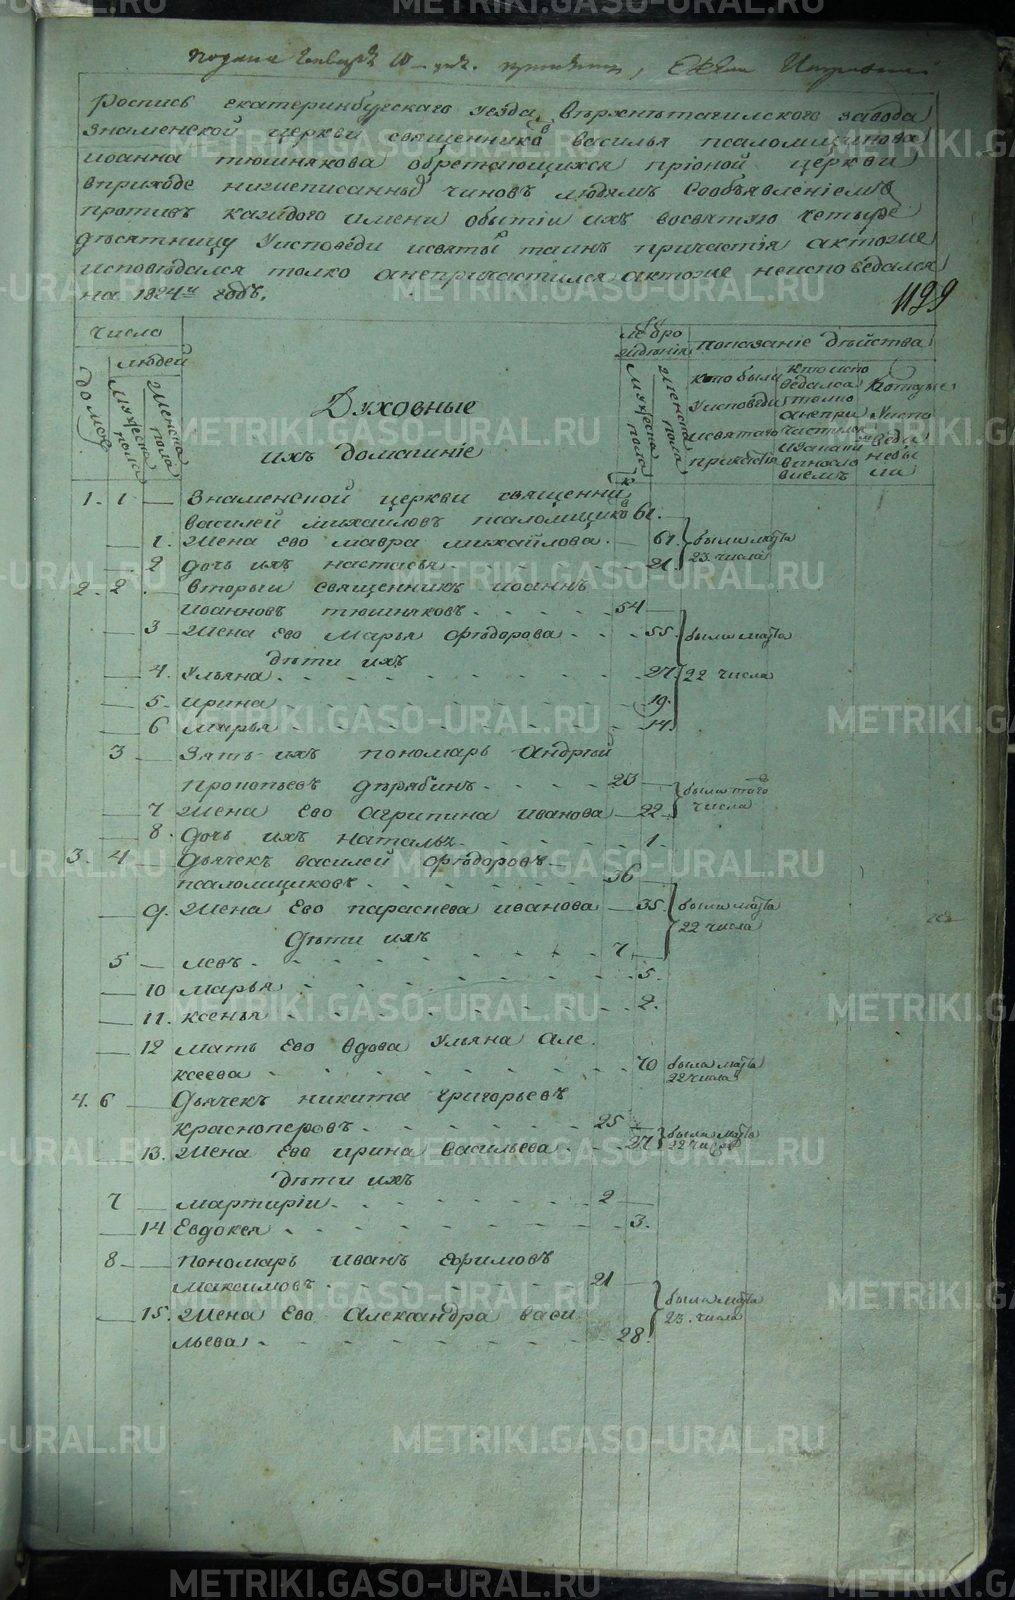 METRIKI.GASO-URAL.RU
подана Генваря 10
Роспись екатеринбургскаго уезда вѣрхнетагилского завода
знаменской церкви священниковъ василья псаломщикова
иоанна тюшнякова обретающихся прионой церкви
вприходе нижеписанныхъ чиновъ людямъ сообъявлениемъ
противъ каждого имени обытіи ихъ восвятую четыре
дѣсятницу уисповеди исвятых таинъ причастія актоже
исповѣдался толко анепричастился актоже неисповедался
на 1824й годъ.
1199
Число
домовъ
людей
мужеска пола
женска пола
Духовные
ихъ домашніе
лѣ от рождѣния
мужеска пола
женска пола
показание дѣйства
кто были уисповеди исвятаго причастія
кто исповедался толко анепричастился изакаким винословиемъ
которые уисповеди небыли
1. 1 — Знаменской церкви священникъ
василей михаиловъ псаломщиковъ 61.
— 1. Жена Ево мавра михайлова. — 61. были марта
— 2 дочь ихъ настасья 21. 23. числа
2. 2 — вторыи священникъ иоаннъ
иоанновъ тюшняковъ 54 —
— 3 — Жена Ево Марья Ѳѣдорова 55 были марта
дѣти ихъ
— 4. Ульяна 27 22 числа
— 5. ирина 19.
— 6 марья 14.
3 — Зять ихъ пономарь Андрѣй
прокопьевъ дѣрябинъ 23 — были того
— 7 Жена Ево Агрипина иванова — 22. числа
— 8. Дочь ихъ наталья 1.
3. 4 — Дьячекъ василей Ѳѣдоровъ
псаломщиковъ 36
— 9. Жена Ево параскева иванова — 35. были марта
22 числа
Дѣти ихъ
5 — левъ. 7
— 10 марья 5.
— 11. ксенья 2.
— 12 мать Ево вдова ульяна але
ксеева 70 была марта
22 числа
4. 6 — Дьячекъ никита григорьевъ
красноперовъ 25 — были марта
— 13. Жена Ево ирина васильева 27 22 числа
дѣти ихъ
7 — мартирiи 2 —
— 14 Евдокея 3.
8 — пономарь иванъ Ефимовъ
максимовъ 21 — были марта
— 15. Жена Ево Александра васи 23. числа
льева 28.